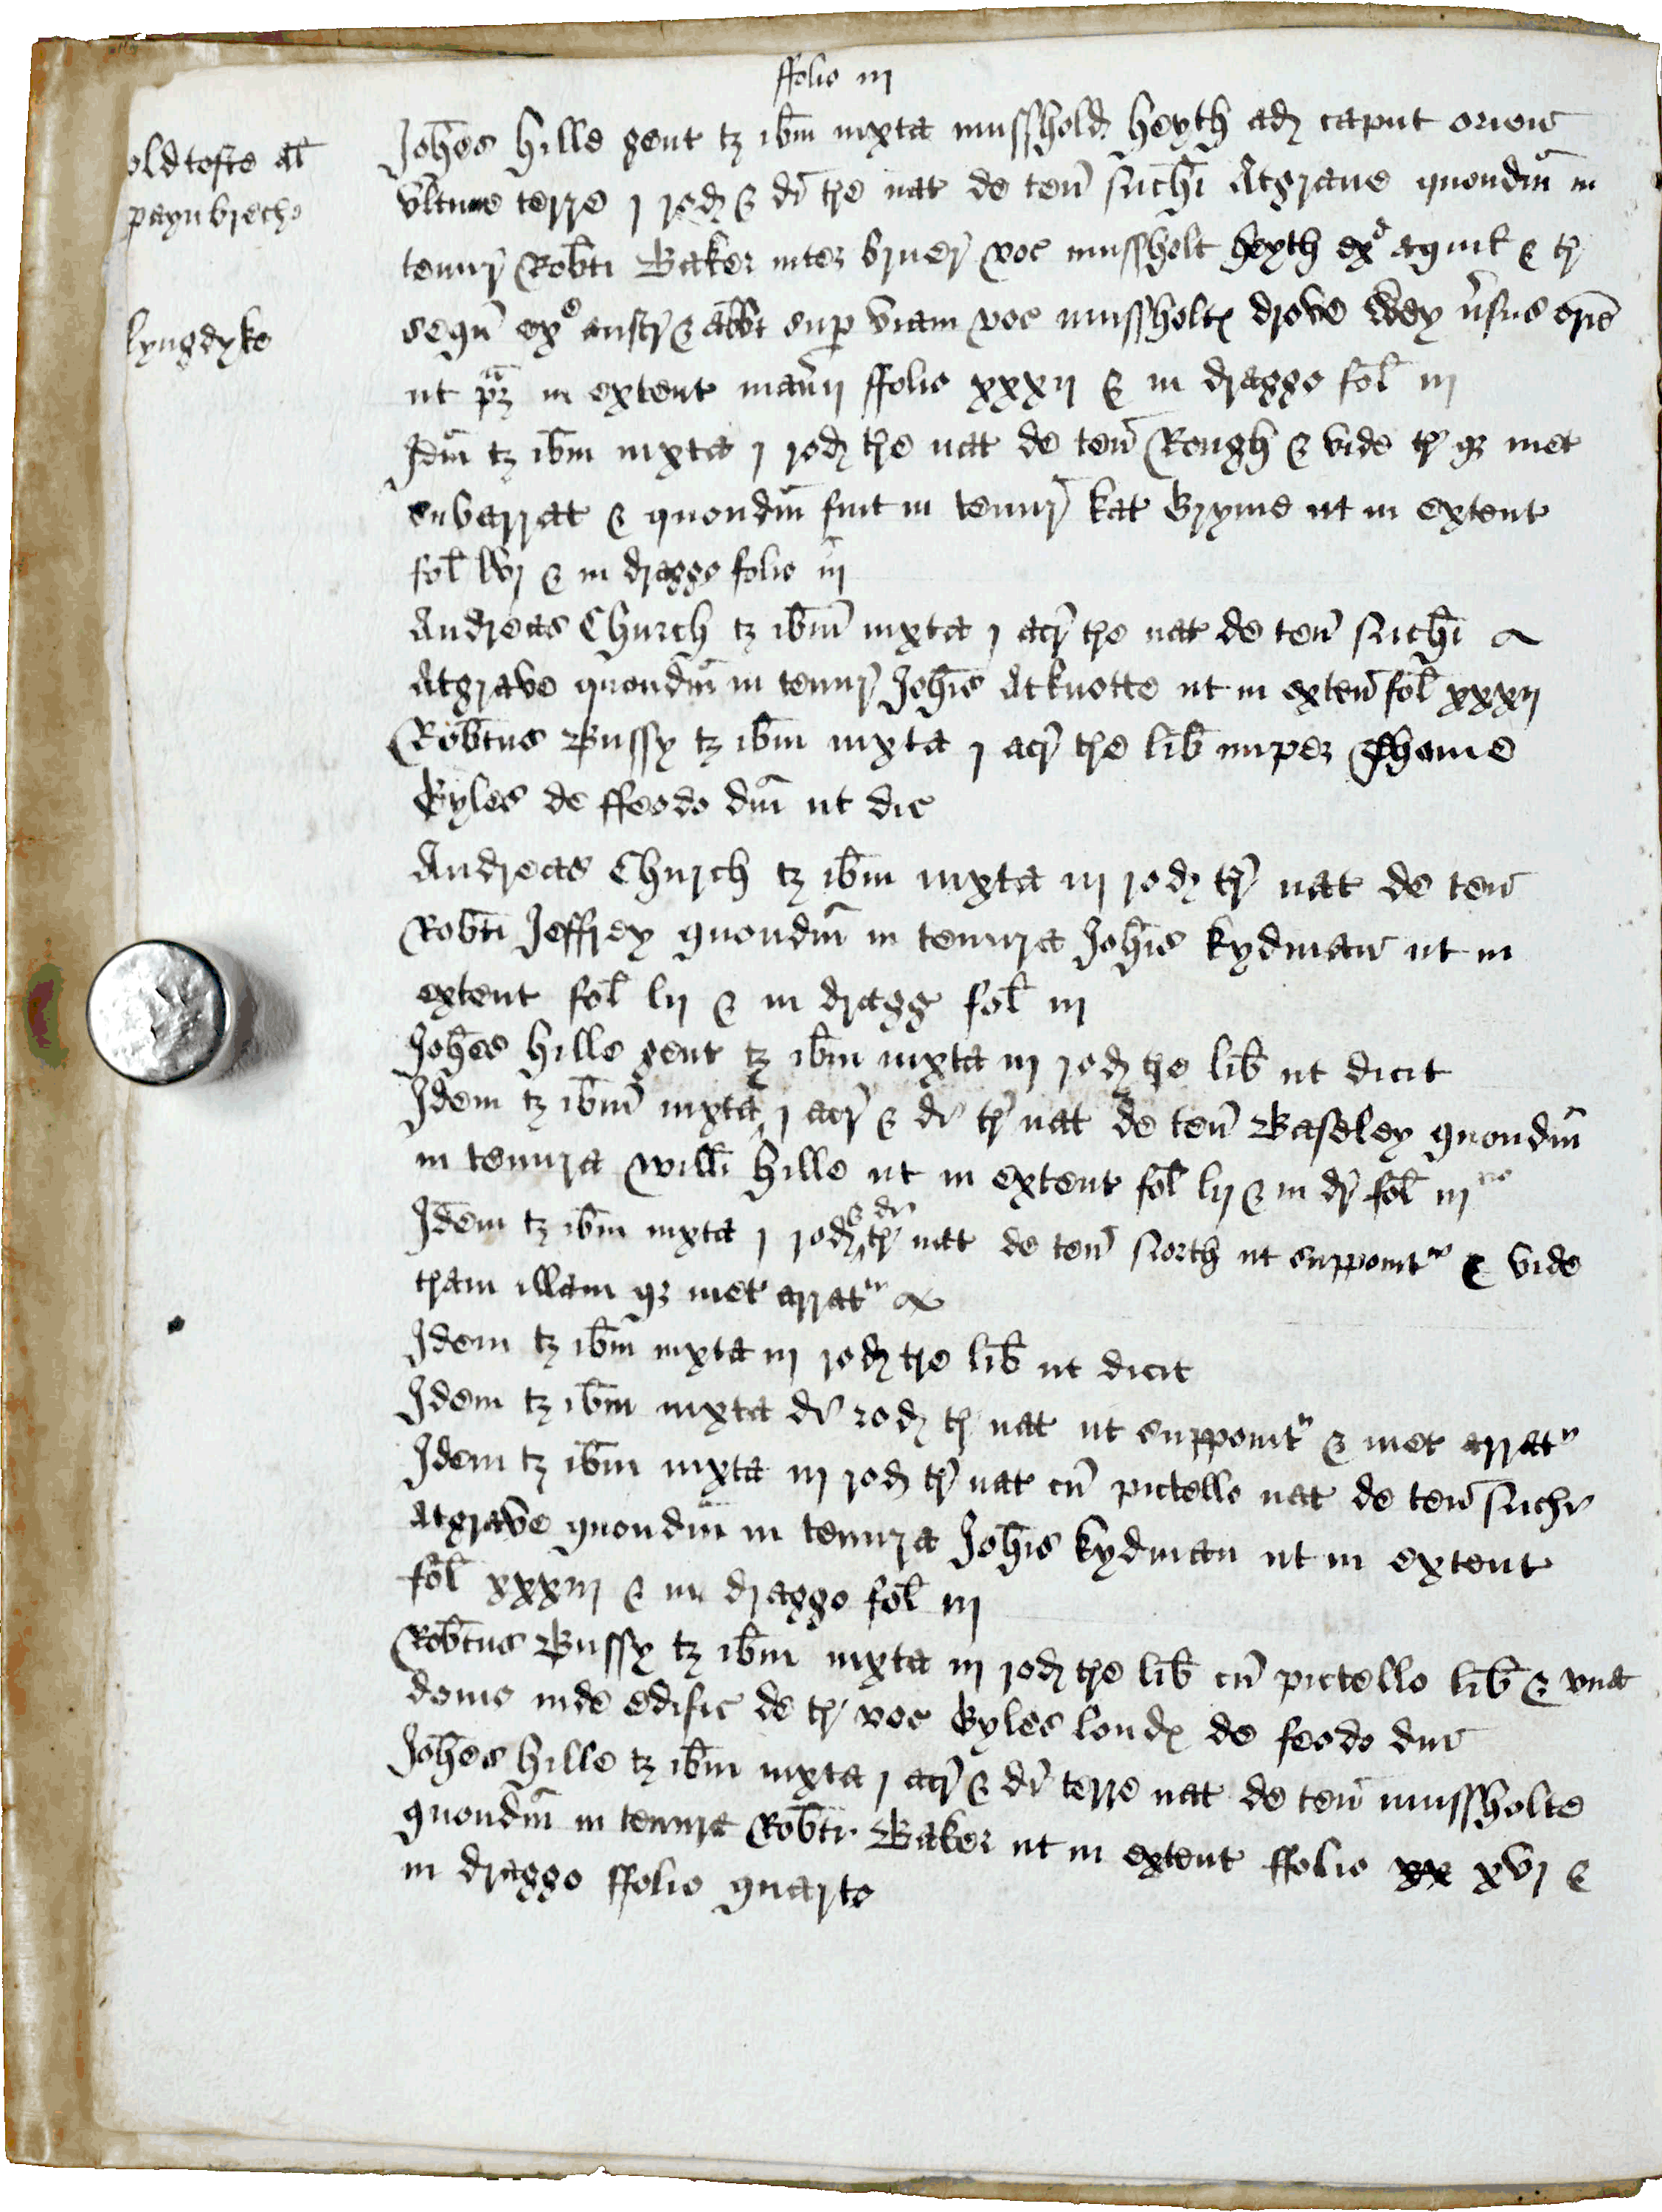 ffolio iij
oldtofte al
paynbreche
lyngdyke
Johes Hille gent tz ibm iuxta mussholdz heyth adz caput orien
ultime terre j rodz & di tre nat de ten Atgrave quondm in
tenur Robti Baker inter bruer voc mussholt heyth ex aquil & tr
sequ ex austr & abbt sup viam voc mussholt drove wey vsus orie
ut pz in extent manij ffolio xxxij & in dragge fol iij
Idm tz ibm iuxta j rodz tre nat de ten Rough & vide tr qz met
subarrat & quondm fuit in tenur kat Gryme ut in extent
fol lvj & in dragge folio iij
Andreas Church tz ibm iuxta j acr tre nat de ten
Atgrave quondm in tenur Johis Atknotte ut in exten fol xxxij
Robtus Bussy tz ibm iuxta j acr tre lib nuper Thome
Gyles de ffeodo dni ut dic
Andreas Church tz ibm iuxta iij rodz tr nat de ten
Robti Jeffrey quondm in tenura Johis kydman ut in
extent fol lij & in dragg fol iij
Johes Hille gent tz ibm iuxta iij rodz tre lib ut dicit
Idem tz ibm iuxta j acr & di tr nat de ten Baseley quondm
in tenura Willi Hille ut in extent fol lij & in dr fol iij
Idem tz ibm iuxta j rodz & di tr nat de ten North ut supponit & vide
tram illam qz met arrat
Idem tz ibm iuxta iij rodz tre lib ut dicit
Idem tz ibm iuxta di rodz tr nat ut supponit & met arrat
Idem tz ibm iuxta iij rodz tr nat cu pictello nat de ten
Atgrave quondm in tenura Johis kydman ut in extent
fol xxxiij & in dragge fol iij
Robtus Bussy tz ibm iuxta iij rodz tre lib cu pictello lib & una
domo inde edific de tr voc Gyles londz de feodo dni
Johes Hille tz ibm iuxta j acr & di terre nat de ten mussholte
quondm in tenura Robti Baker ut in extent ffolio xx xvj &
in dragge ffolio quarto